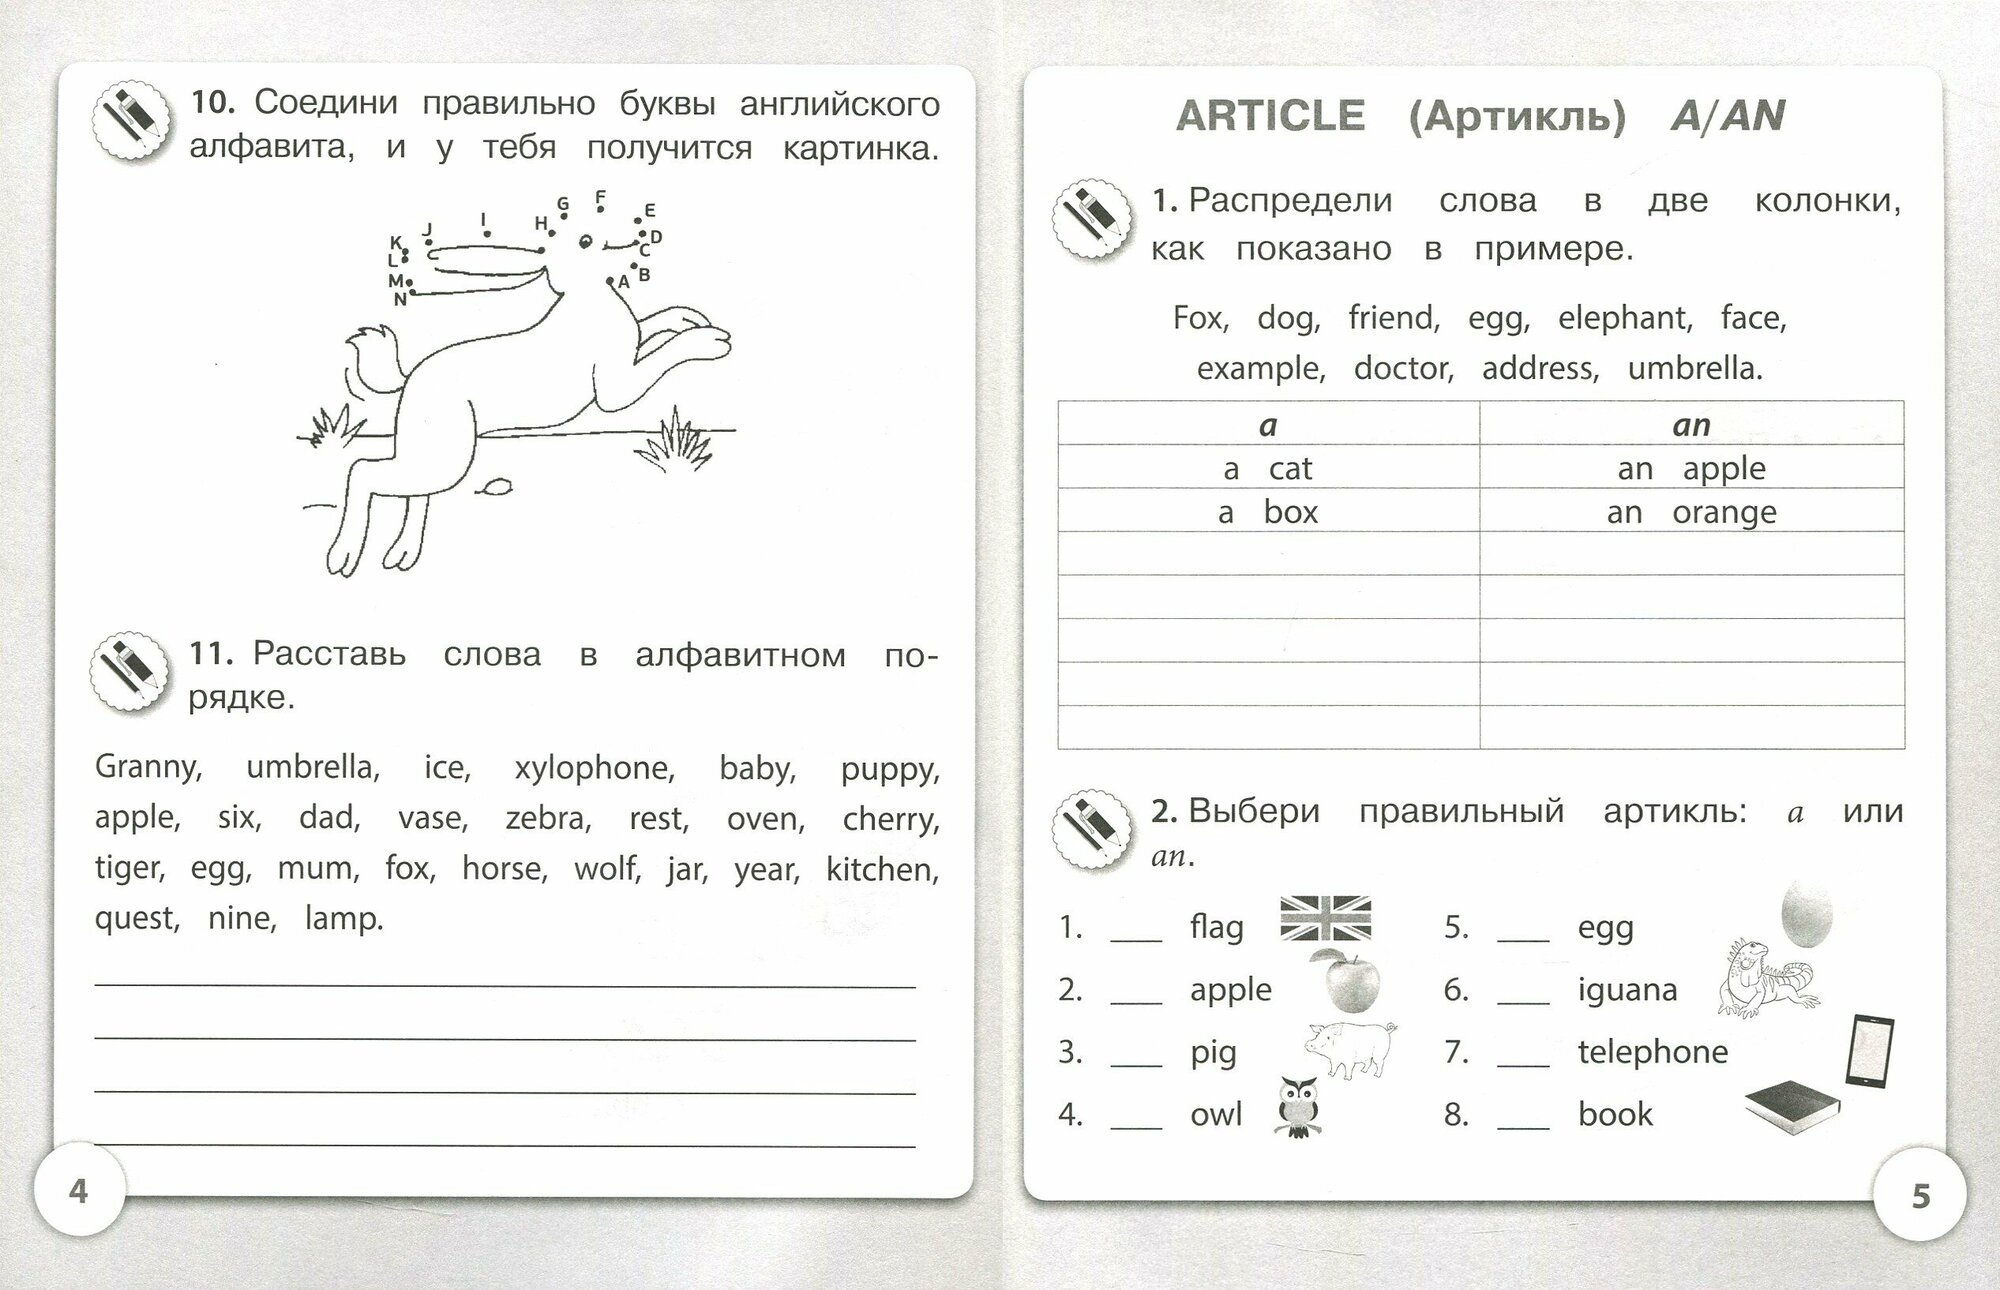 10. Соедини правильно буквы английского
алфавита, и у тебя получится картинка.
F
G
E
I
H
J
D
K
C
L
B
M
A
N
11. Расставь слова в алфавитном по-
рядке.
Granny, umbrella, ice, xylophone, baby, puppy,
apple, six, dad, vase, zebra, rest, oven, cherry,
tiger, egg, mum, fox, horse, wolf, jar, year, kitchen,
quest, nine, lamp.
4
ARTICLE (Артикль) A/AN
1. Распредели слова в две колонки,
как показано в примере.
Fox, dog, friend, egg, elephant, face,
example, doctor, address, umbrella.
a an
a cat an apple
a box an orange
2. Выбери правильный артикль: a или
an.
1. ___ flag
2. ___ apple
3. ___ pig
4. ___ owl
5. ___ egg
6. ___ iguana
7. ___ telephone
8. ___ book
5